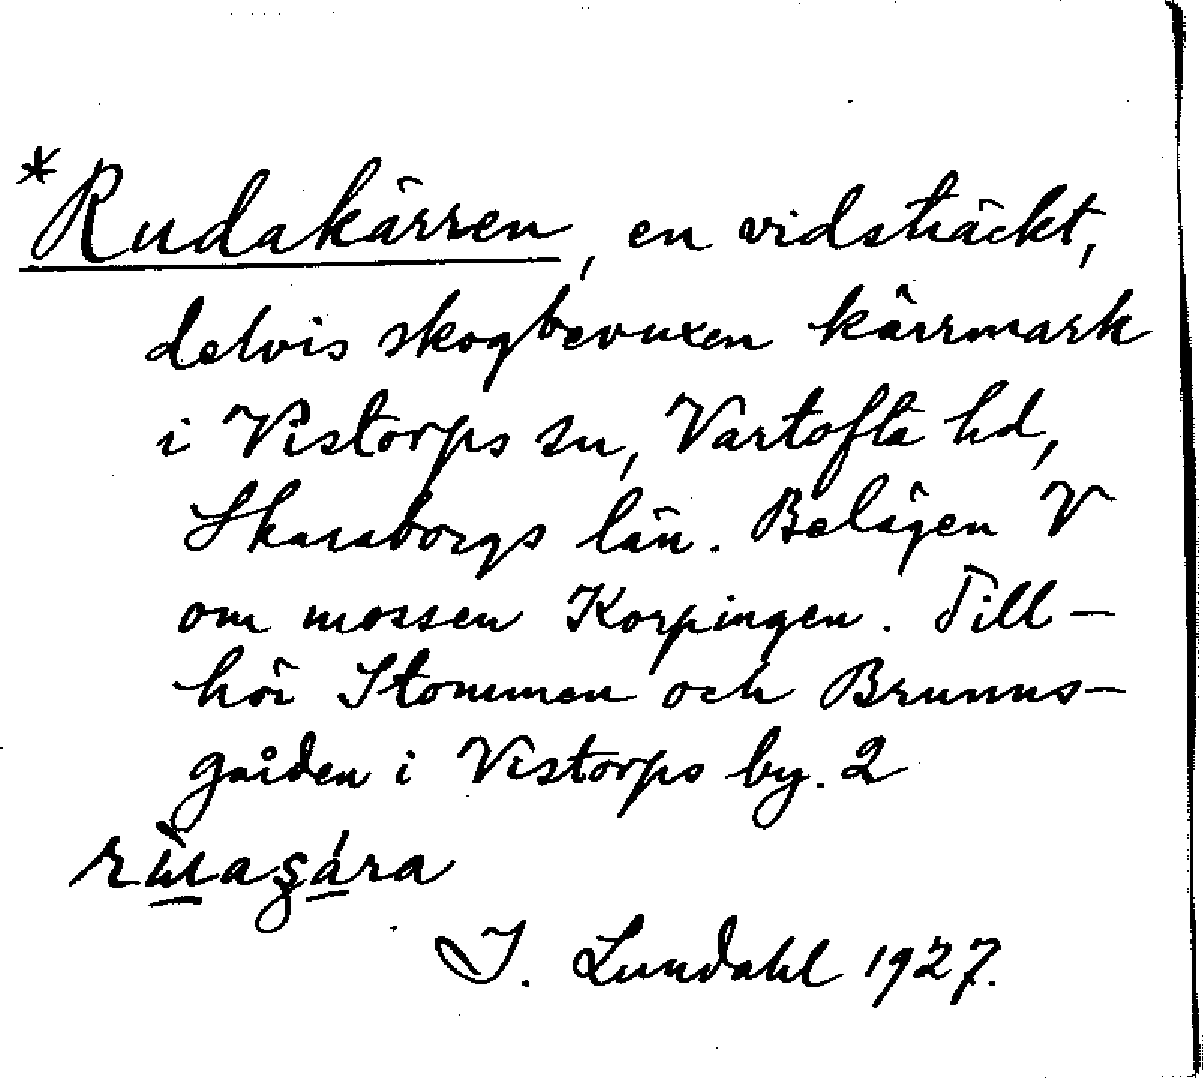 *Rudakärren, en vidsträckt,
delvis skogbevuxen kärrmark
i Vistorps sn, Vartofta hd,
Skaraborgs län. Belägen V
om mossen Korpingen. Till-
hör Stommen och Brunns-
gården i Vistorps by. 2
I. Lundahl 1927.